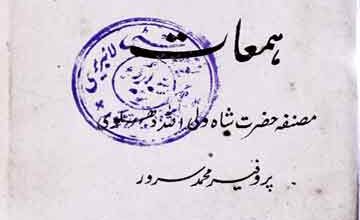 ہمعات
مصنفہ حضرت شاہ ولی اللہ دھلوی
پروفیسر محمد سرور
لائبریری